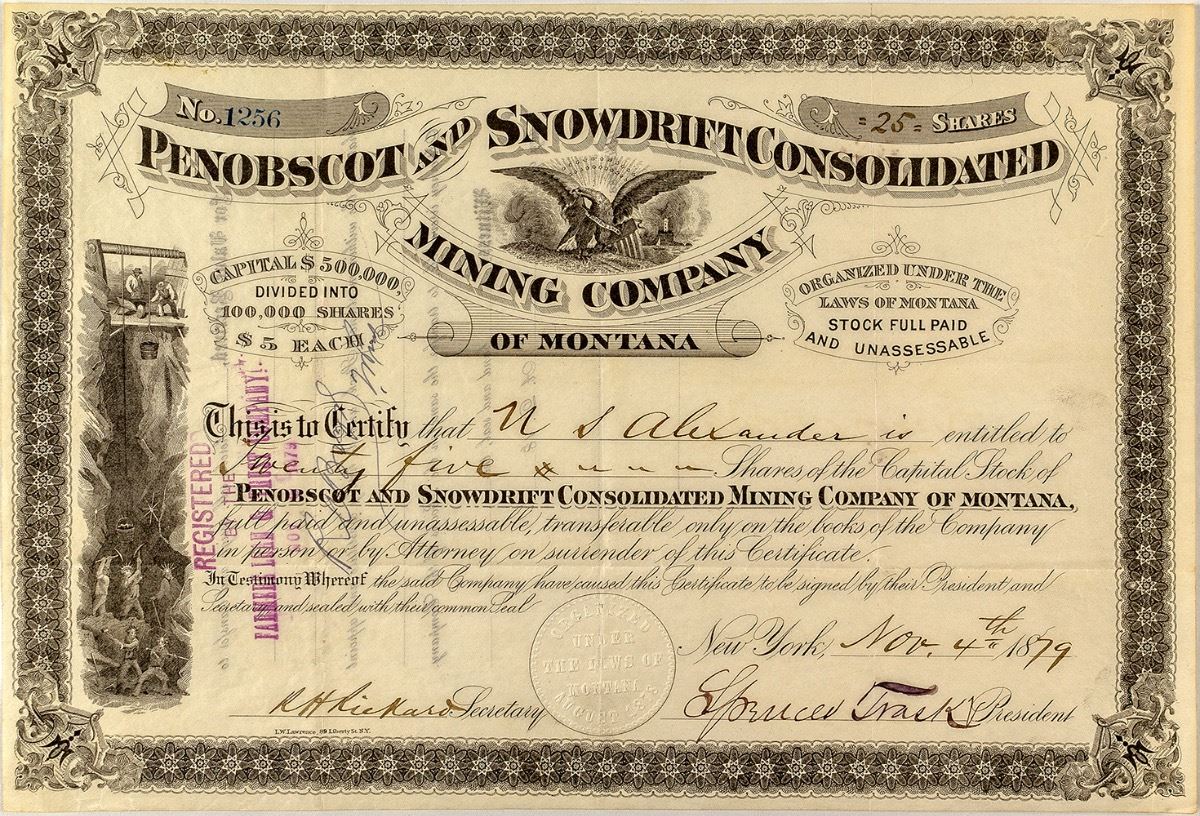 No. 1256
=25= SHARES
PENOBSCOT AND SNOWDRIFT CONSOLIDATED
MINING COMPANY
OF MONTANA
CAPITAL $500,000,
DIVIDED INTO
100,000 SHARES
$5 EACH
ORGANIZED UNDER THE
LAWS OF MONTANA
STOCK FULL PAID
AND UNASSESSABLE
This is to Certify that N S Alexander is entitled to
Twenty five Shares of the Capital Stock of
PENOBSCOT AND SNOWDRIFT CONSOLIDATED MINING COMPANY OF MONTANA,
full paid and unassessable, transferable only on the books of the Company
in person or by Attorney on surrender of this Certificate.
In Testimony Whereof the said Company have caused this Certificate to be signed by their President and
Secretary and sealed with their common Seal
New York, Nov. 4th 1879
R H Rickard Secretary
Spencer Trask President
ORGANIZED
UNDER
THE LAWS OF
MONTANA
AUGUST 1878
REGISTERED
BY THE
FARMERS LOAN & TRUST COMPANY.
L.W. Lawrence, 89 Liberty St. N.Y.